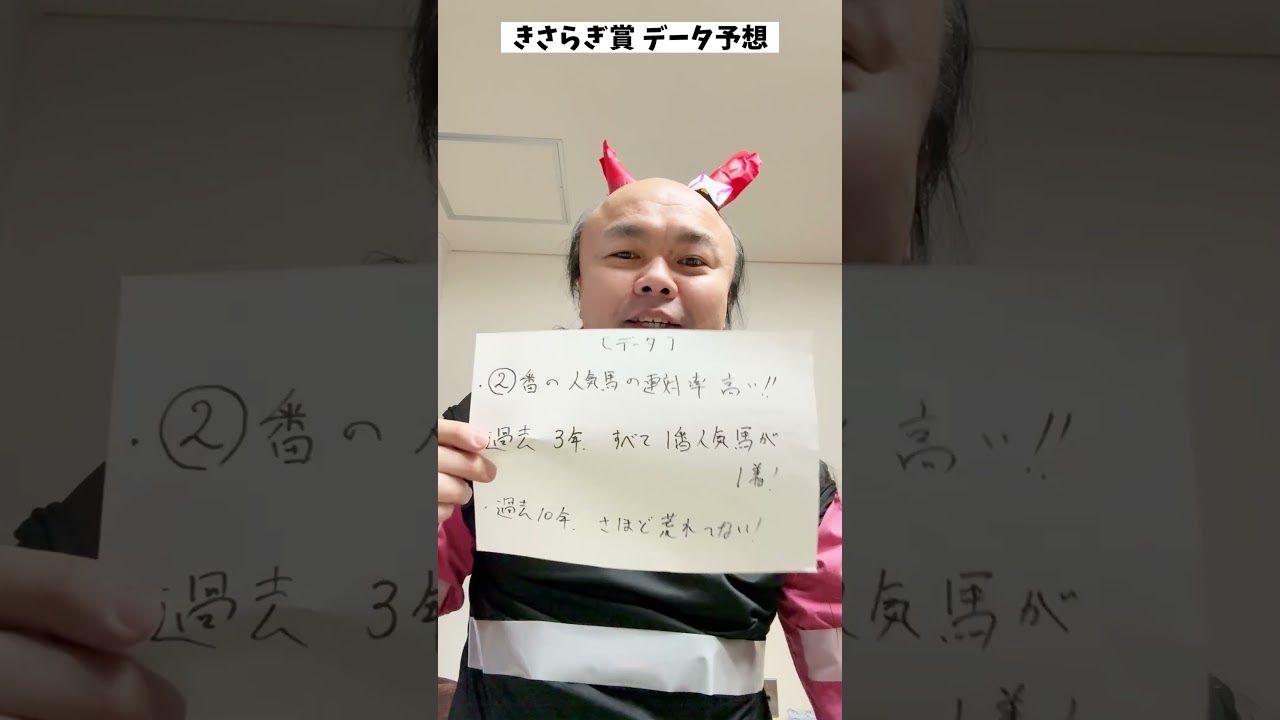 きさらぎ賞 データ予想
[データ]
・②番の人気馬の連対率高い!!
過去3年、すべて1番人気馬が
1着!
・過去10年、さほど荒れてない!